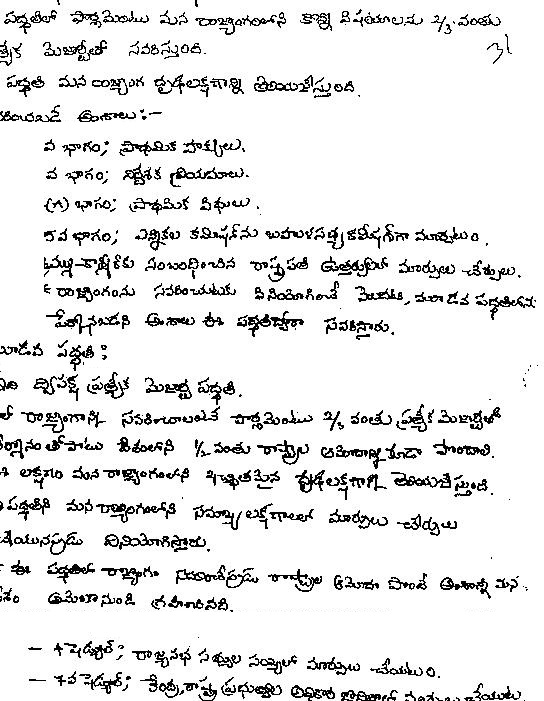 పద్ధతిలో పార్లమెంటు మన రాజ్యాంగంలోని కొన్ని విషయాలను 2/3 వంతు
త్యేక మెజార్టీతో సవరిస్తుంది.
పద్ధతి మన రాజ్యాంగ దృఢలక్షణాన్ని తెలియజేస్తుంది.
అంశాలు:-
వ భాగం; ప్రాథమిక హక్కులు.
వ భాగం; నిర్దేశక నియమాలు.
భాగం; ప్రాథమిక విధులు.
వ భాగం; ఎన్నికల కమిషన్‌ను కమీషన్‌గా మార్చటం.
సంబంధించిన రాష్ట్రపతి ఉత్తర్వులలో మార్పులు చేర్పులు.
రాజ్యాంగంను సవరించుటకు వినియోగించే మొదటి, మూడవ పద్ధతిలోను
పేర్కొనబడని అంశాలు ఈ పద్ధతిద్వారా సవరిస్తారు.
మూడవ పద్ధతి:
ద్విపక్ష ప్రత్యేక మెజార్టీ పద్ధతి.
లో రాజ్యాంగాన్ని సవరించాలంటే పార్లమెంటు 2/3 వంతు ప్రత్యేక మెజార్టీతో
తీర్మానంతోపాటు దేశంలోని 1/2 వంతు రాష్ట్రాల ఆమోదాన్ని కూడా పొందాలి.
లక్షణం మన రాజ్యాంగంలోని దృఢలక్షణాన్ని తెలియజేస్తుంది.
పద్ధతిని మన రాజ్యాంగంలోని సమాఖ్య లక్షణాలలో మార్పులు చేర్పులు
చేయునపుడు వినియోగిస్తారు.
ఈ పద్ధతిలో రాజ్యాంగం సవరించేప్పుడు రాష్ట్రాల ఆమోదం పొందే అంశాన్ని మన
దేశం అమెరికానుండి గ్రహించినది.
- 4 షెడ్యూల్; రాజ్యసభ సభ్యుల సంఖ్యలో మార్పులు చేయటం.
- 7వ షెడ్యూల్; కేంద్ర, రాష్ట్ర ప్రభుత్వాల అధికార చేయుట.